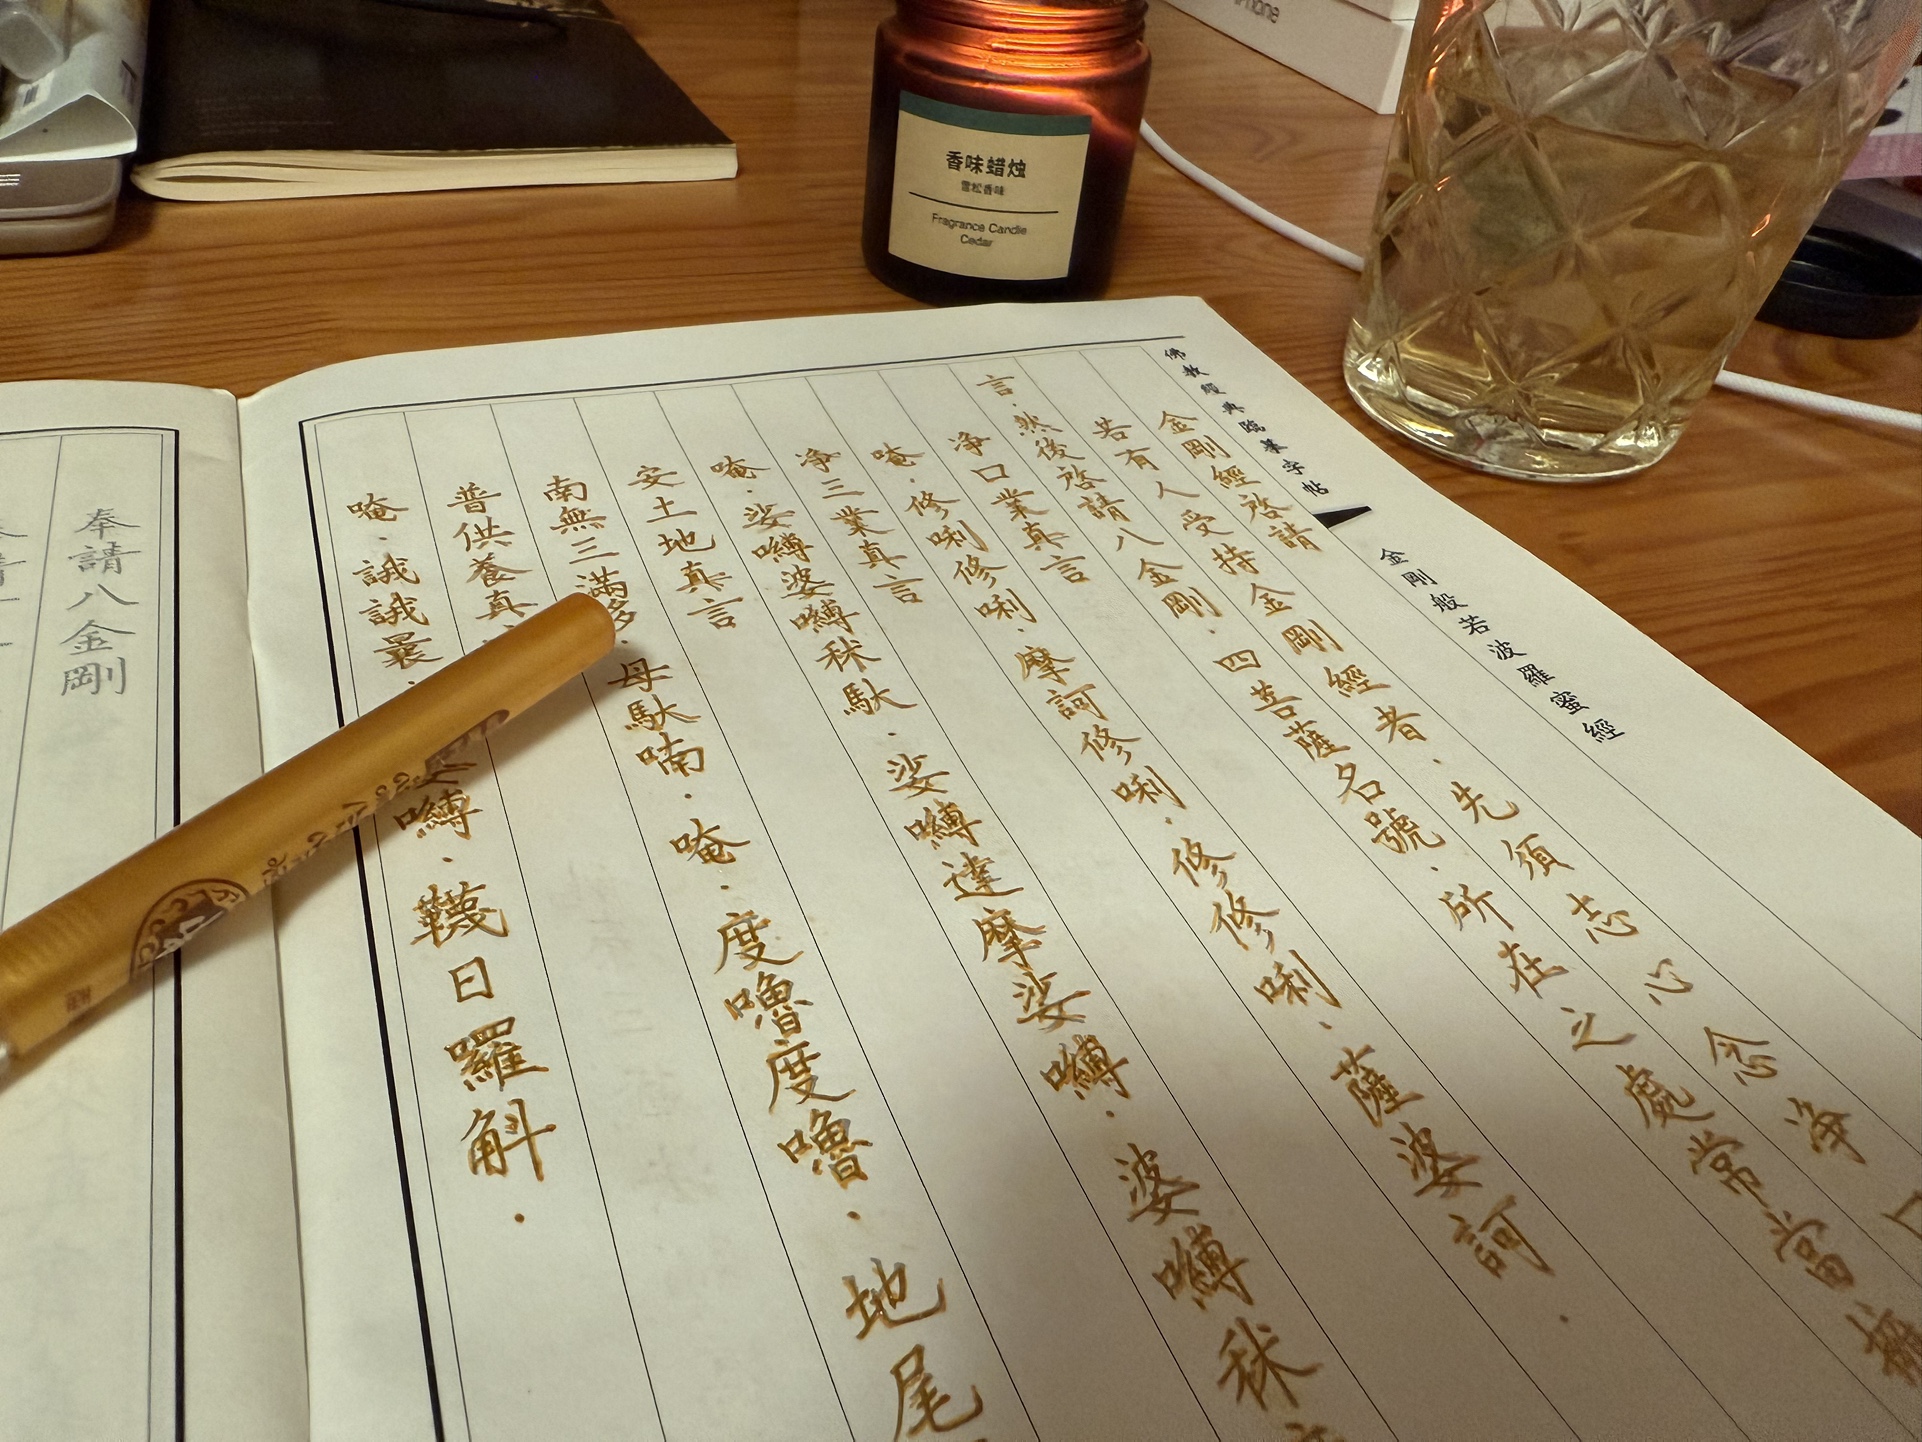 iPhone
香味蜡烛
雪松香味
Fragrance Candle
Cedar
佛教經典臨摹字帖
金剛般若波羅蜜經
金剛經啓請
若有人受持金剛經者.先須志心念淨口
言.然後啓請八金剛.四菩薩名號.所在之處常當擁
净口業真言
唵.修唎修唎.摩訶修唎.修修唎.薩婆訶.
净三業真言
唵.娑嚩婆嚩秫馱.娑嚩達摩娑嚩.婆嚩秫
安土地真言
南無三滿多.母馱喃.唵.度嚕度嚕.地尾
普供養真
唵.誐誐曩.嚩.韈日羅斛.
奉請八金剛